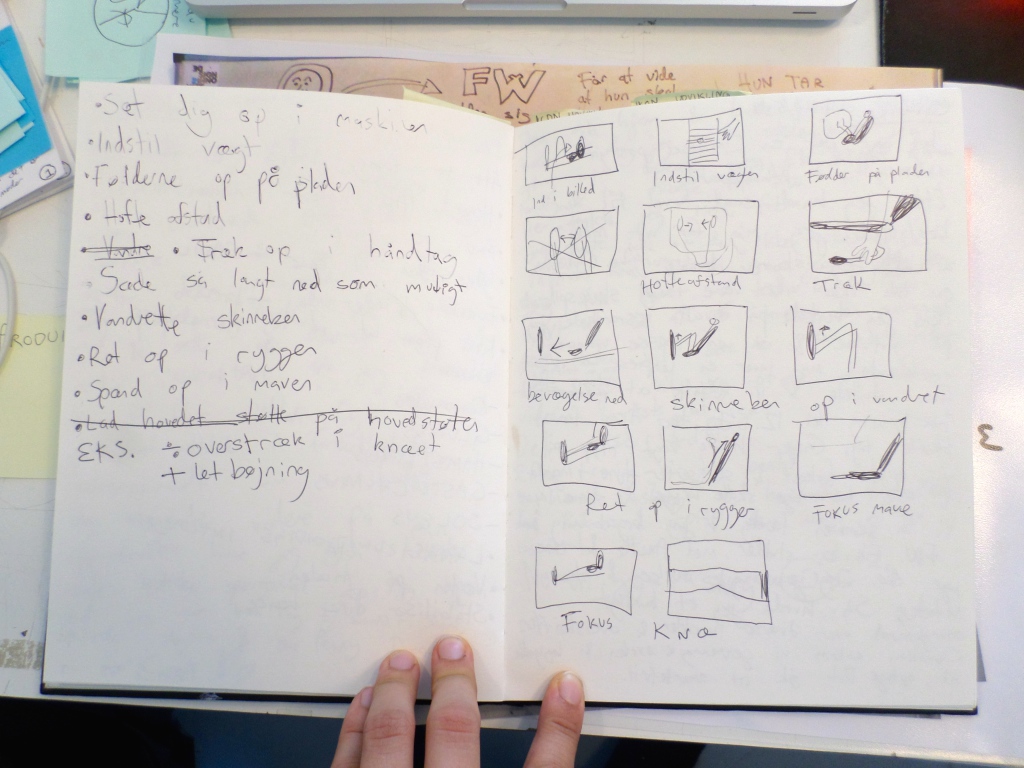 FW
For at vide
at hun skal
HUN TAR
• Sæt dig op i maskinen
• Indstil vægt
• Fødderne op på pladen
• Hofte afstand
• Træk op i håndtag
Sæde så langt ned som muligt
• Vandrette skinneben
• Ret op i ryggen
• Spænd op i maven
• Lad hovedet støtte på hovedstøtten
EKS. ÷ overstræk i knæet
+ let bøjning
Ind i billed
Indstil vægten
Fødder på pladen
Hofteafstand
Træk
bevægelse ned
skinneben op i vandret
Ret op i ryggen
Fokus mave
Fokus
KNÆ